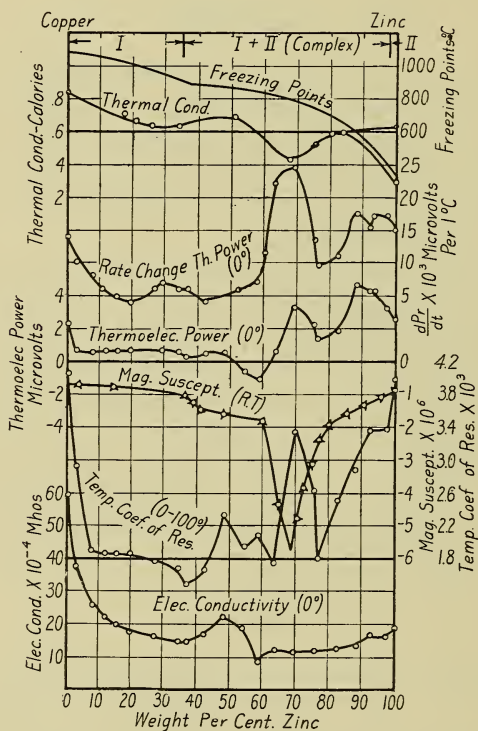 Copper
Zinc
I
I + II (Complex)
II
Freezing Points
Thermal Cond.
Rate Change Th. Power
(0°)
Thermoelec. Power (0°)
Mag. Suscept. (R.T)
(0-100°)
Temp. Coef. of Res.
Elec. Conductivity (0°)
Thermal Cond-Calories
.8
.6
4
2
Thermoelec Power
Microvolts
4
2
0
-2
-4
Elec. Cond. X 10⁻⁴ Mhos
60
50
40
30
20
10
Freezing Points °C
1000
800
600
dPr/dt X 10³ Microvolts
Per 1°C
25
20
15
10
5
0
Mag. Suscept. X 10⁶
-1
-2
-3
-4
-5
-6
Temp. Coef of Res. X 10³
4.2
3.8
3.4
3.0
2.6
2.2
1.8
0 10 20 30 40 50 60 70 80 90 100
Weight Per Cent. Zinc